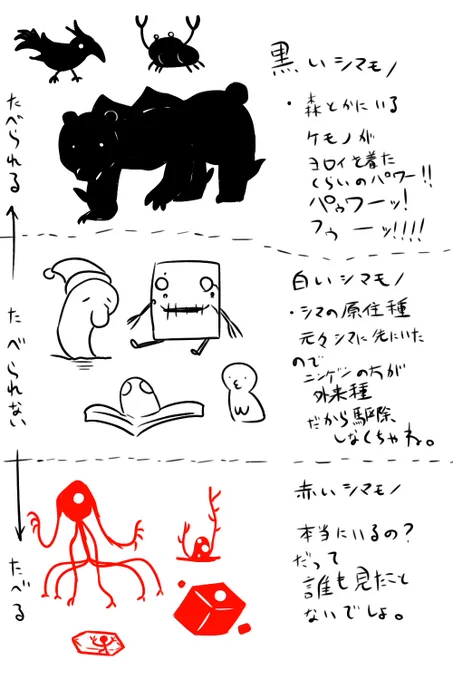 黒いシマモノ
・森とかにいる
ケモノが
ヨロイを着た
くらいのパワー!!
パゥワーッ!
フゥーッ!!!!
たべられる
白いシマモノ
・シマの原住種
元々シマに先にいた
ので
ニンゲンの方が
外来種
だから駆除
しなくちゃね。
たべられない
赤いシマモノ
本当にいるの?
だって
誰も見たこと
ないでしょ。
たべる